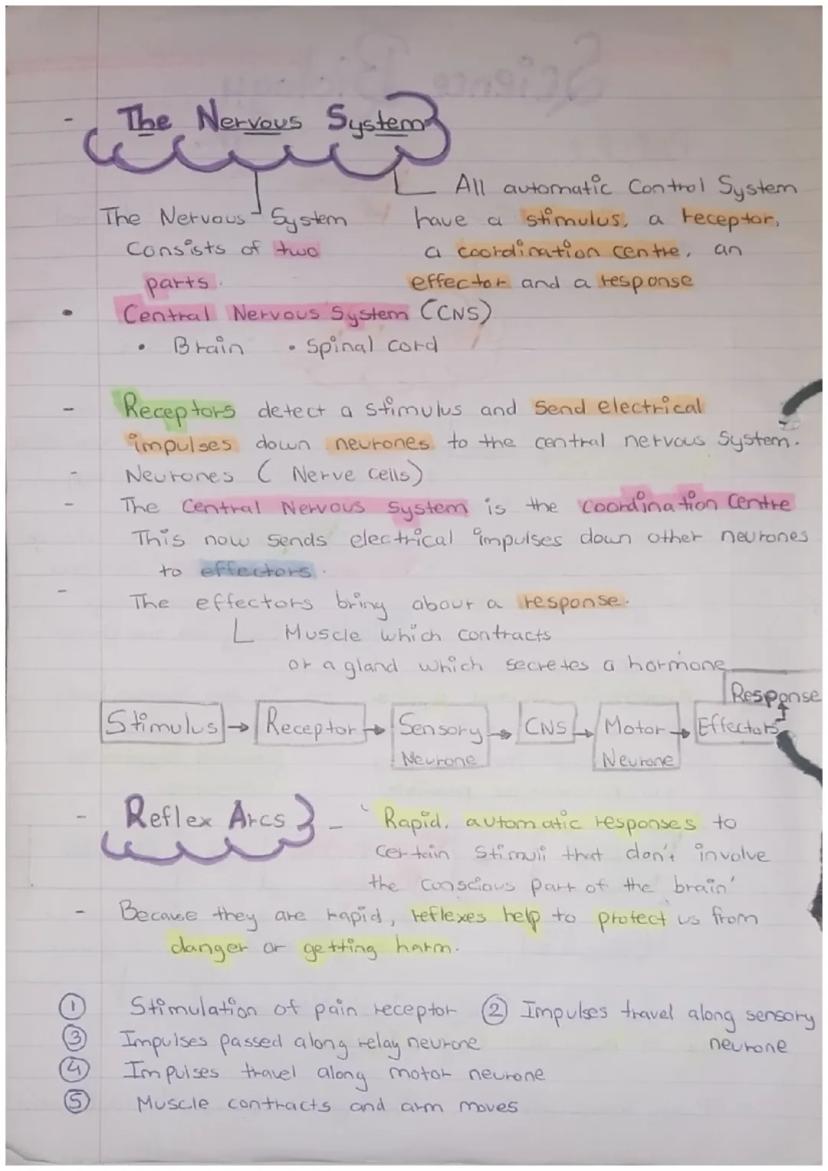 - The Nervous System
All automatic Control System
have a stimulus, a receptor,
a coordination centre, an
effector and a response
The Nervous System
Consists of two
parts.
• Central Nervous System (CNS)
• Brain • Spinal cord
- Receptors detect a stimulus and send electrical
impulses down neurones to the central nervous system.
- Neurones ( Nerve cells)
- The Central Nervous System is the coordination centre
This now sends electrical impulses down other neurones
to effectors.
- The effectors bring abour a response.
Muscle which contracts
or a gland which secretes a hormone
Response
Stimulus → Receptor → Sensory Neurone → CNS → Motor Neurone → Effectors
- Reflex Arcs - ' Rapid, automatic responses to
certain stimuli that don't involve
the conscious part of the brain'
- Because they are rapid, reflexes help to protect us from
danger or getting harm.
① Stimulation of pain receptor ② Impulses travel along sensory
neurone
③ Impulses passed along relay neurone
④ Impulses travel along motor neurone
⑤ Muscle contracts and arm moves